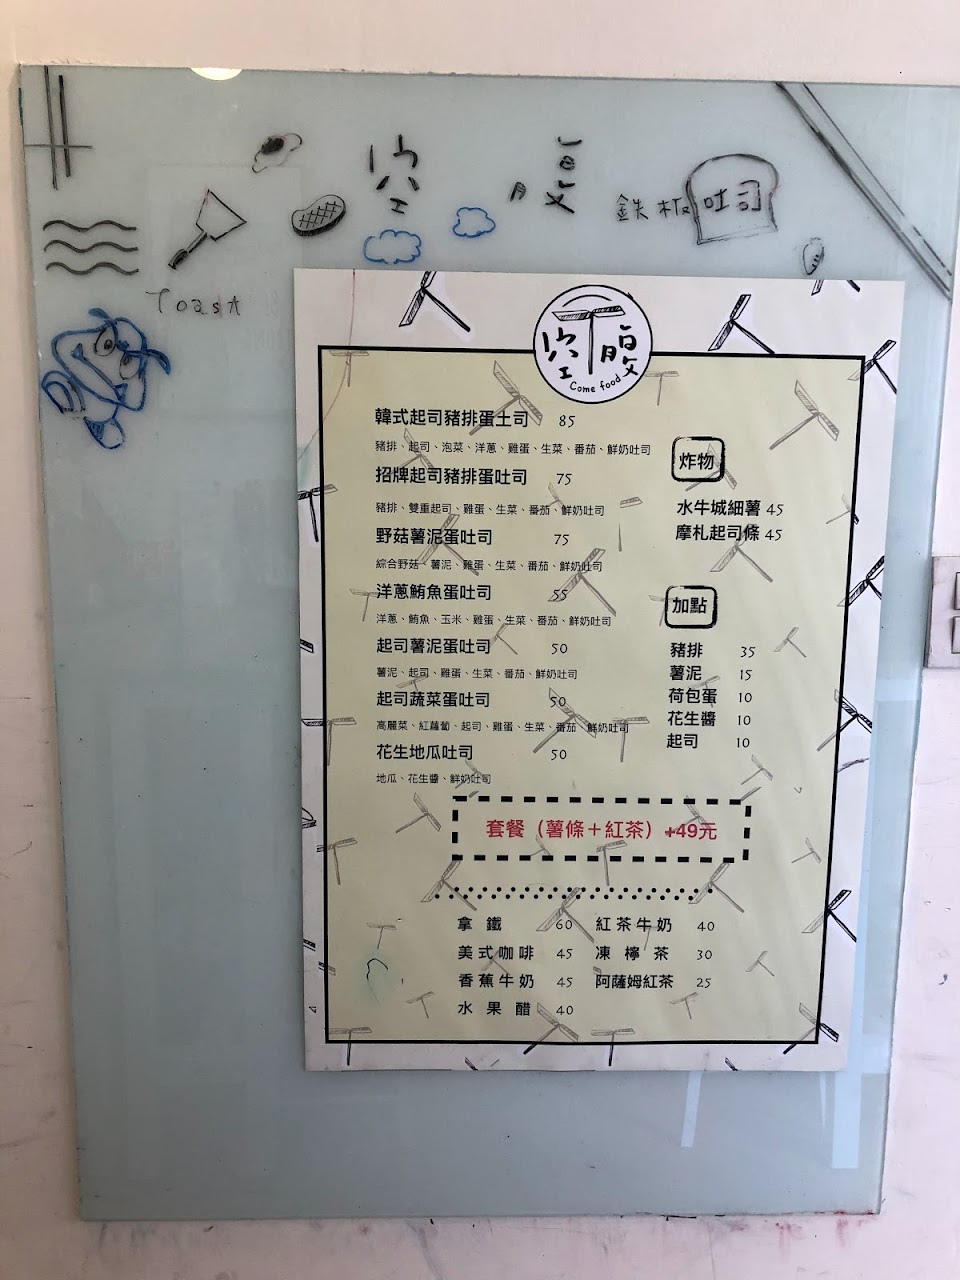 空腹
鉄板吐司
Toast
空腹
Come food
韓式起司豬排蛋土司 85
豬排、起司、泡菜、洋蔥、雞蛋、生菜、番茄、鮮奶吐司
招牌起司豬排蛋吐司 75
豬排、雙重起司、雞蛋、生菜、番茄、鮮奶吐司
野菇薯泥蛋吐司 75
綜合野菇、薯泥、雞蛋、生菜、番茄、鮮奶吐司
洋蔥鮪魚蛋吐司 55
洋蔥、鮪魚、玉米、雞蛋、生菜、番茄、鮮奶吐司
起司薯泥蛋吐司 50
薯泥、起司、雞蛋、生菜、番茄、鮮奶吐司
起司蔬菜蛋吐司 50
高麗菜、紅蘿蔔、起司、雞蛋、生菜、番茄、鮮奶吐司
花生地瓜吐司 50
地瓜、花生醬、鮮奶吐司
炸物
水牛城細薯 45
摩札起司條 45
加點
豬排 35
薯泥 15
荷包蛋 10
花生醬 10
起司 10
套餐（薯條＋紅茶）+49元
拿鐵 60
美式咖啡 45
香蕉牛奶 45
水果醋 40
紅茶牛奶 40
凍檸茶 30
阿薩姆紅茶 25